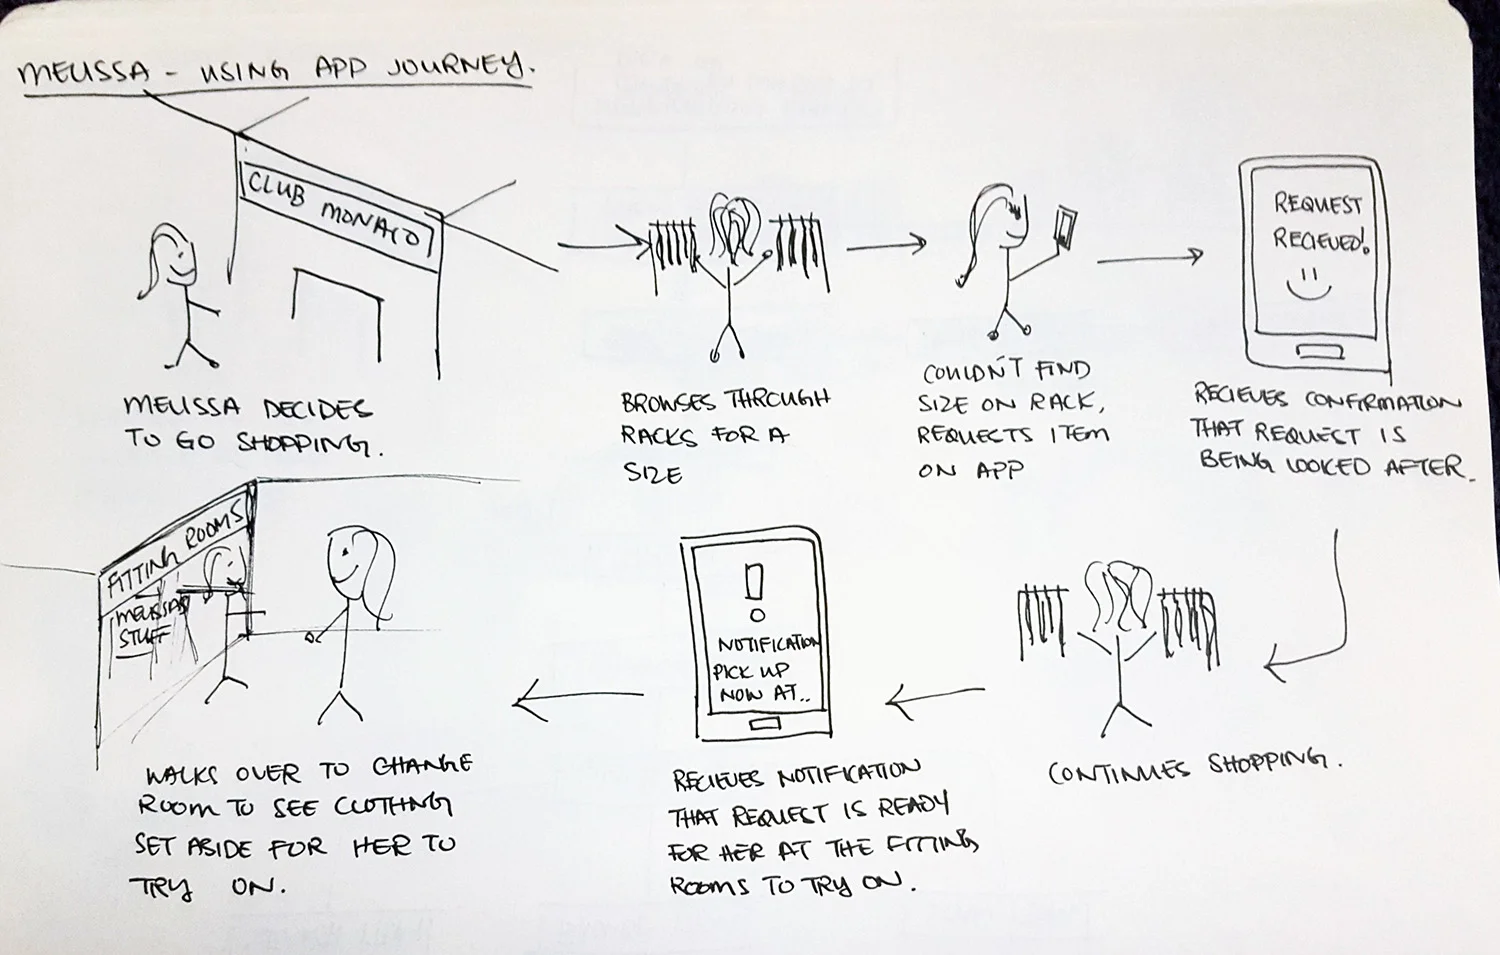 MELISSA - USING APP JOURNEY.
CLUB MONACO
MELISSA DECIDES
TO GO SHOPPING.
BROWSES THROUGH
RACKS FOR A
SIZE
COULDN'T FIND
SIZE ON RACK,
REQUESTS ITEM
ON APP
REQUEST
RECIEVED!
RECIEVES CONFIRMATION
THAT REQUEST IS
BEING LOOKED AFTER.
CONTINUES SHOPPING.
!
NOTIFICATION
PICK UP
NOW AT..
RECIEVES NOTIFICATION
THAT REQUEST IS READY
FOR HER AT THE FITTING
ROOMS TO TRY ON.
FITTING ROOMS
MELISSAS
STUFF
WALKS OVER TO CHANGE
ROOM TO SEE CLOTHNG
SET ASIDE FOR HER TO
TRY ON.